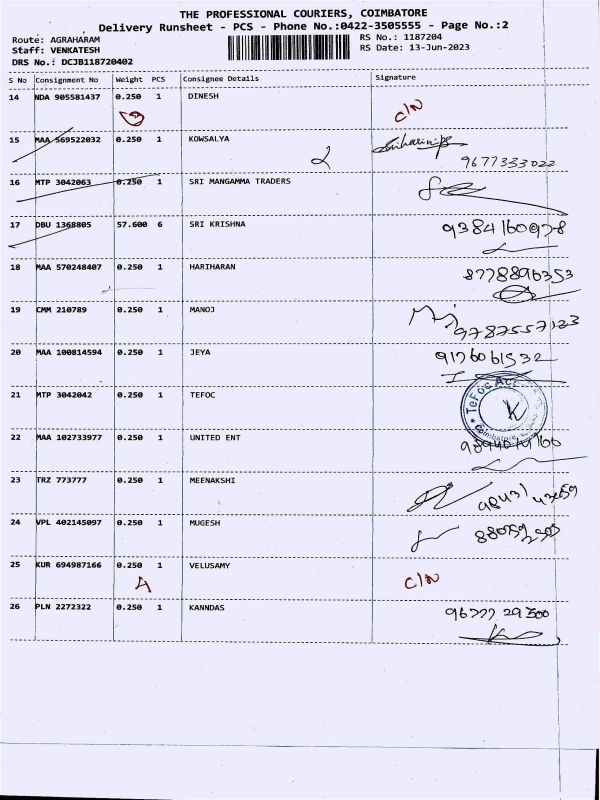 THE PROFESSIONAL COURIERS, COIMBATORE
Delivery Runsheet - PCS - Phone No.:0422-3505555 - Page No.:2
Route: AGRAHARAM RS No.: 1187204
Staff: VENKATESH RS Date: 13-Jun-2023
DRS No.: DCJB118720402
S No Consignment No Weight PCS Consignee Details Signature
14 NDA 905581437 0.250 1 DINESH C/N
15 MAA 569522032 0.250 1 KOWSALYA
9677333022
16 MTP 3042063 0.250 1 SRI MANGAMMA TRADERS
17 DBU 1368805 57.600 6 SRI KRISHNA 9384160978
18 MAA 570248407 0.250 1 HARIHARAN 8778896353
19 CMM 210789 0.250 1 MANOJ
9787557123
20 MAA 100814594 0.250 1 JEYA 9176061532
21 MTP 3042042 0.250 1 TEFOC
22 MAA 102733977 0.250 1 UNITED ENT
23 TRZ 773777 0.250 1 MEENAKSHI
24 VPL 402145097 0.250 1 MUGESH
25 KUR 694987166 0.250 1 VELUSAMY C/N
26 PLN 2272322 0.250 1 KANNDAS 9677729300